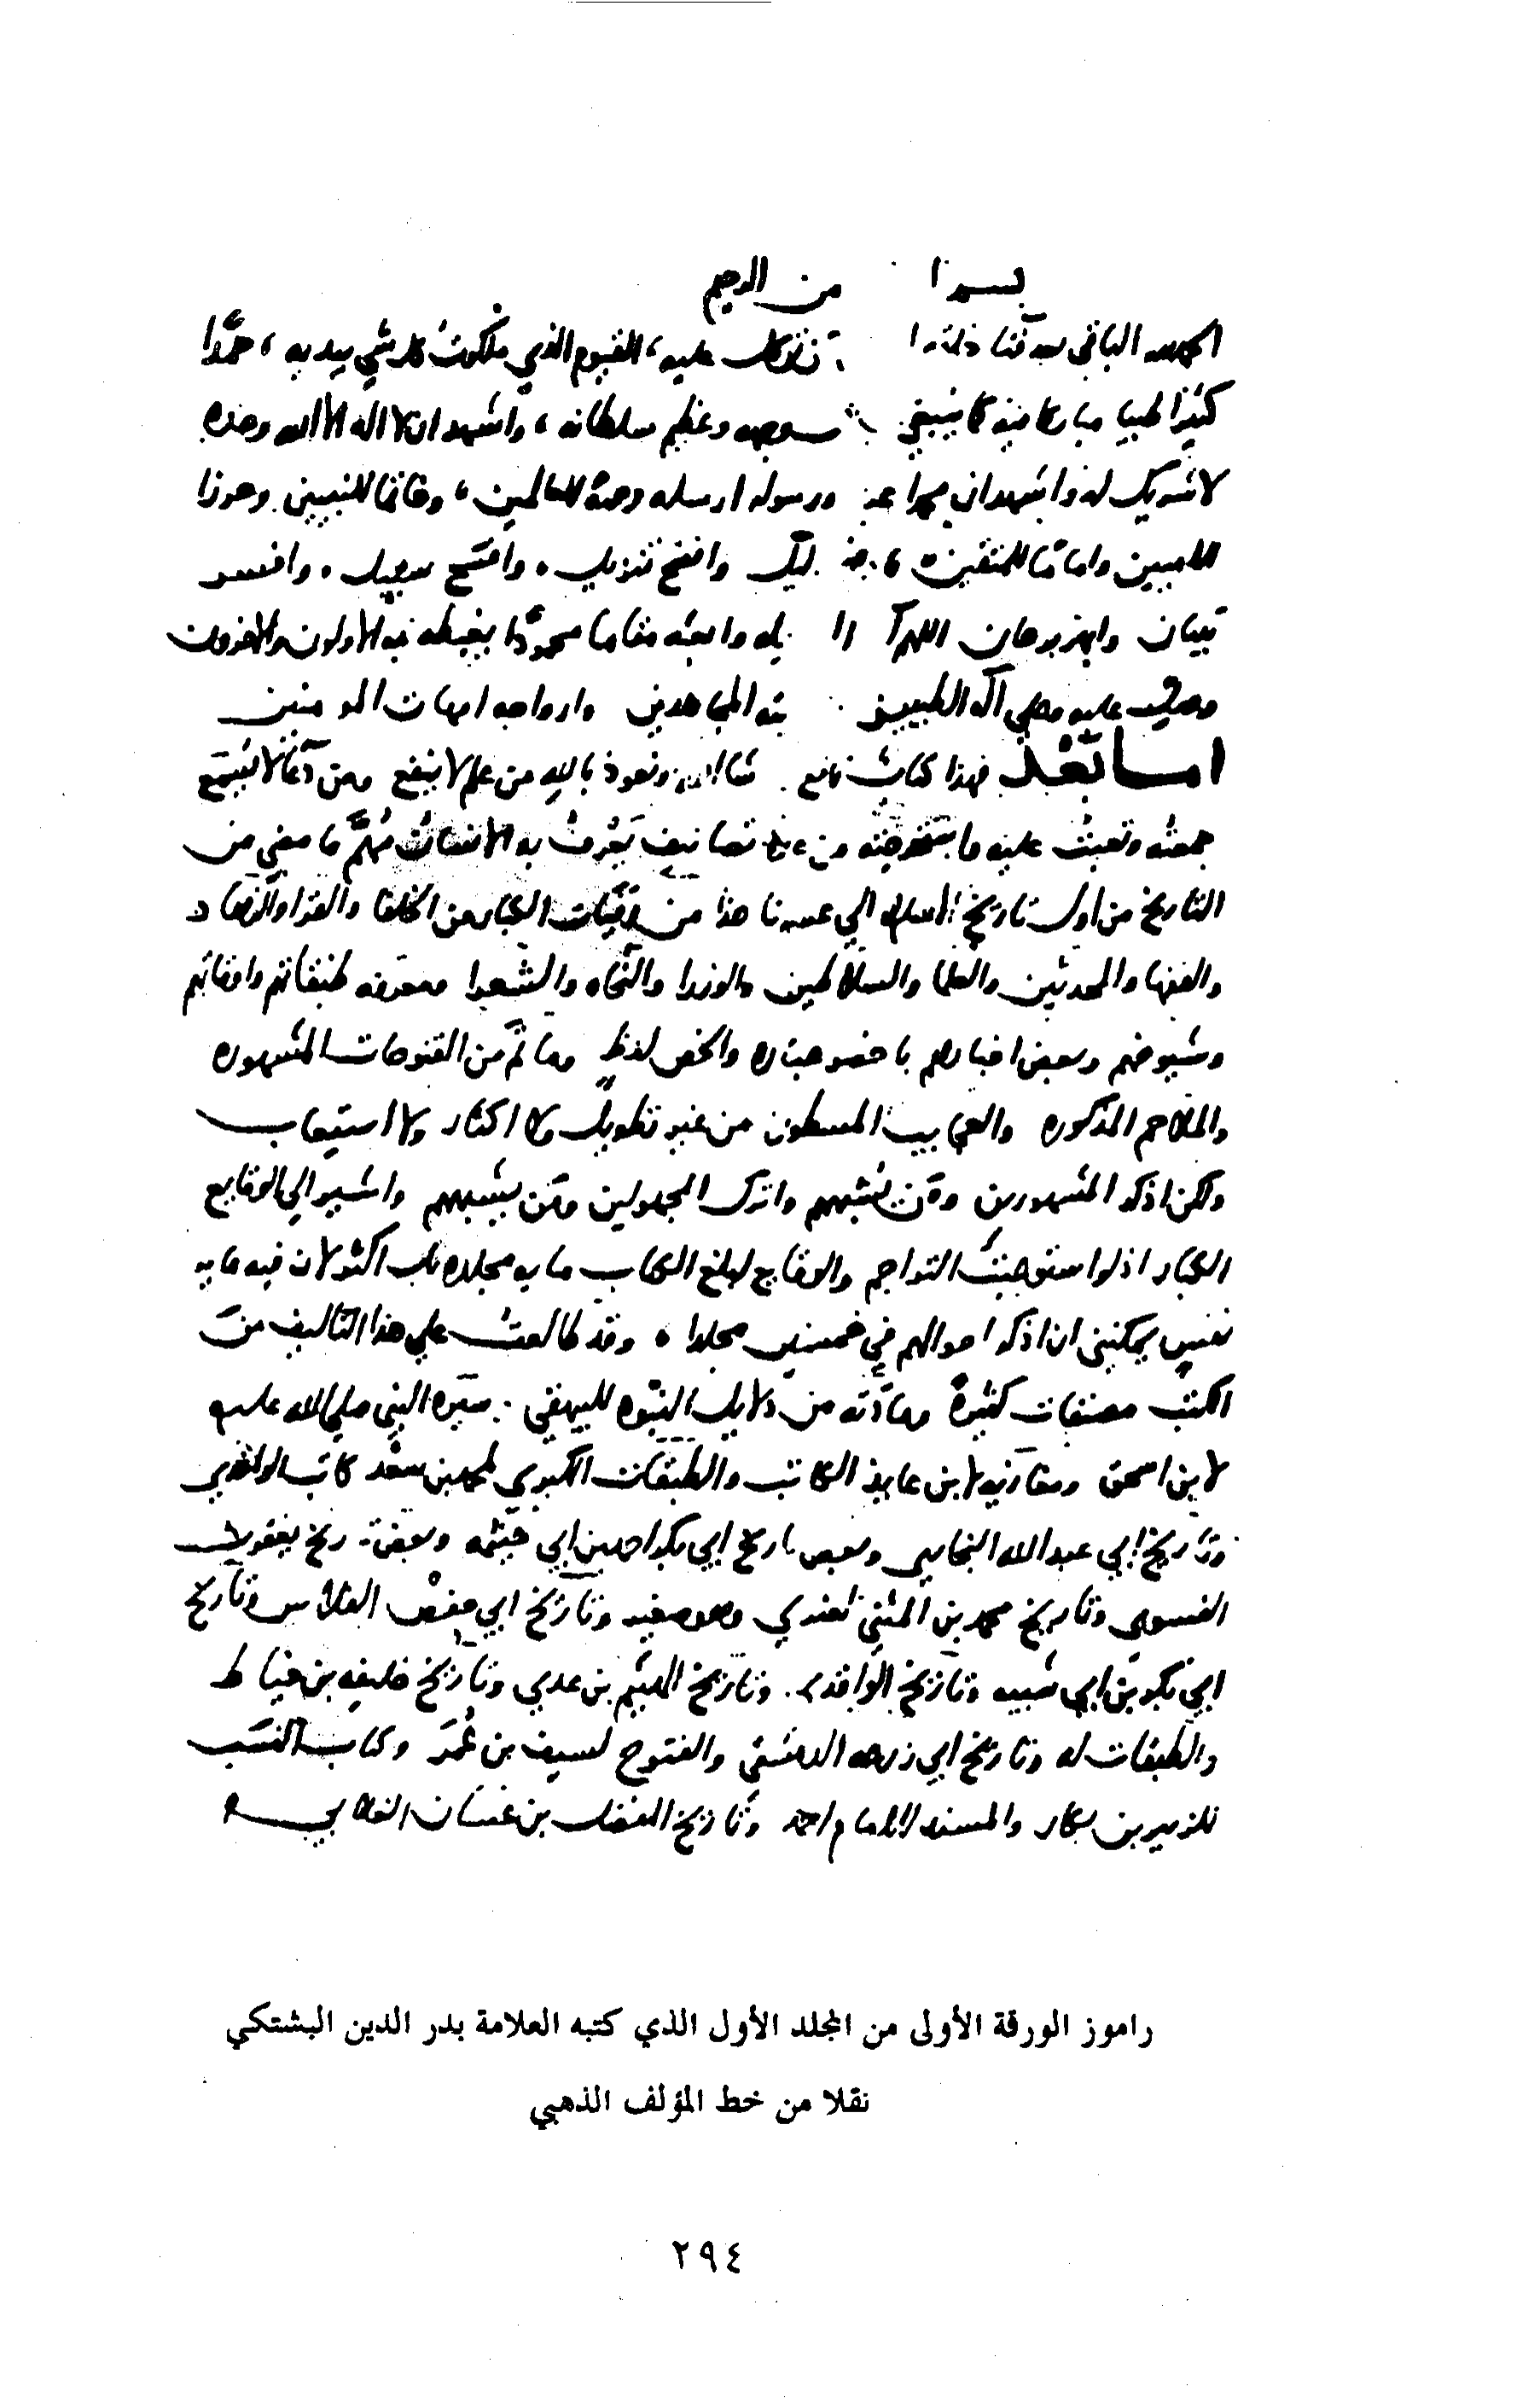 بسم ا من الرحيم
الحمد لله الباقي بعد فناء خلقه ا نتوكل عليه، القيوم الذي ملكوت كل شي بيديه، حمدا
كثيرا طيبا مباركا فيه كما ينبغي وجهه وعظيم سلطانه، واشهد ان لا اله الا الله وحده
لا شريك له واشهد ان محمدا عبد ورسوله ارسله رحمة للعالمين، وخاتما للنبيين وحرزا
للاميين واماما للمتقين دليل وافصح تنزيل. وافسح سبيل. وافسر
تبيان وابهر برهان اللهم آ وابعثه مقاما محمودا يغبطه فيه الاولون والاخرون
وصل عليه وعلى آله الطيبين المجاهدين وازواجه امهات المومنين
اما بعد فهذا كتاب نافع ونعوذ بالله من علم لا ينفع ومن دعا لا يسمع
جمعته وتعبت عليه واستخرجته من تصانيف يعرف به الانسان مهم ما مضي من
التاريخ من اول تاريخ الاسلام الي عصرنا هذا من وفيات الكبار من الخلفا والقرا والزهاد
والفقها والمحدثين والعلما والسلاطين والوزرا والنحاه والشعرا ومعرفه طبقاتهم واوقاتهم
وشيوخهم وبعض اخبارهم باخصر عباره والخص لفظ وما تم من الفتوحات المشهوره
والملاحم المذكوره والعجايب المسطوره من غير تطويل ولا اكثار ولا استيعاب
ولكن اذكر المشهورين ومن يشبههم واترك المجهولين ومن يشبههم واشير الي الوقايع
الكبار اذ لو استوعبت التراجم والوقايع لبلغ الكتاب مايه مجلده بل اكثر لان فيه مايه
نفس يمكنني ان اذكر احوالهم في خمسين مجلدا. وقد طالعت علي هذا التاليف من
الكتب مصنفات كثيرة ومادته من دلايل النبوه للبيهقي. سيره النبي صلي الله عليه
لابن اسحق ومغازيه لابن عايذ الكاتب والطبقات الكبري لمحمد بن سعد كاتب الواقدي
وتاريخ ابي عبد الله البخاري وبعض تاريخ ابي بكر احمد بن ابي خيثمه وبعض تاريخ يعقوب
الفسوي وتاريخ محمد بن المثني العنزي وهو صغير وتاريخ ابي حفص الفلاس وتاريخ
ابي بكر بن ابي شيبه وتاريخ الواقدي. وتاريخ الهيثم بن عدي وتاريخ خليفه بن خياط
والطبقات له وتاريخ ابي زرعه الدمشقي والفتوح لسيف بن عمر وكتاب النسب
للزبير بن بكار والمسند للامام احمد وتاريخ المفضل بن غسان الغلابي
راموز الورقة الأولى من المجلد الأول الذي كتبه العلامة بدر الدين البشتكي
نقلا من خط المؤلف الذهبي
٢٩٤